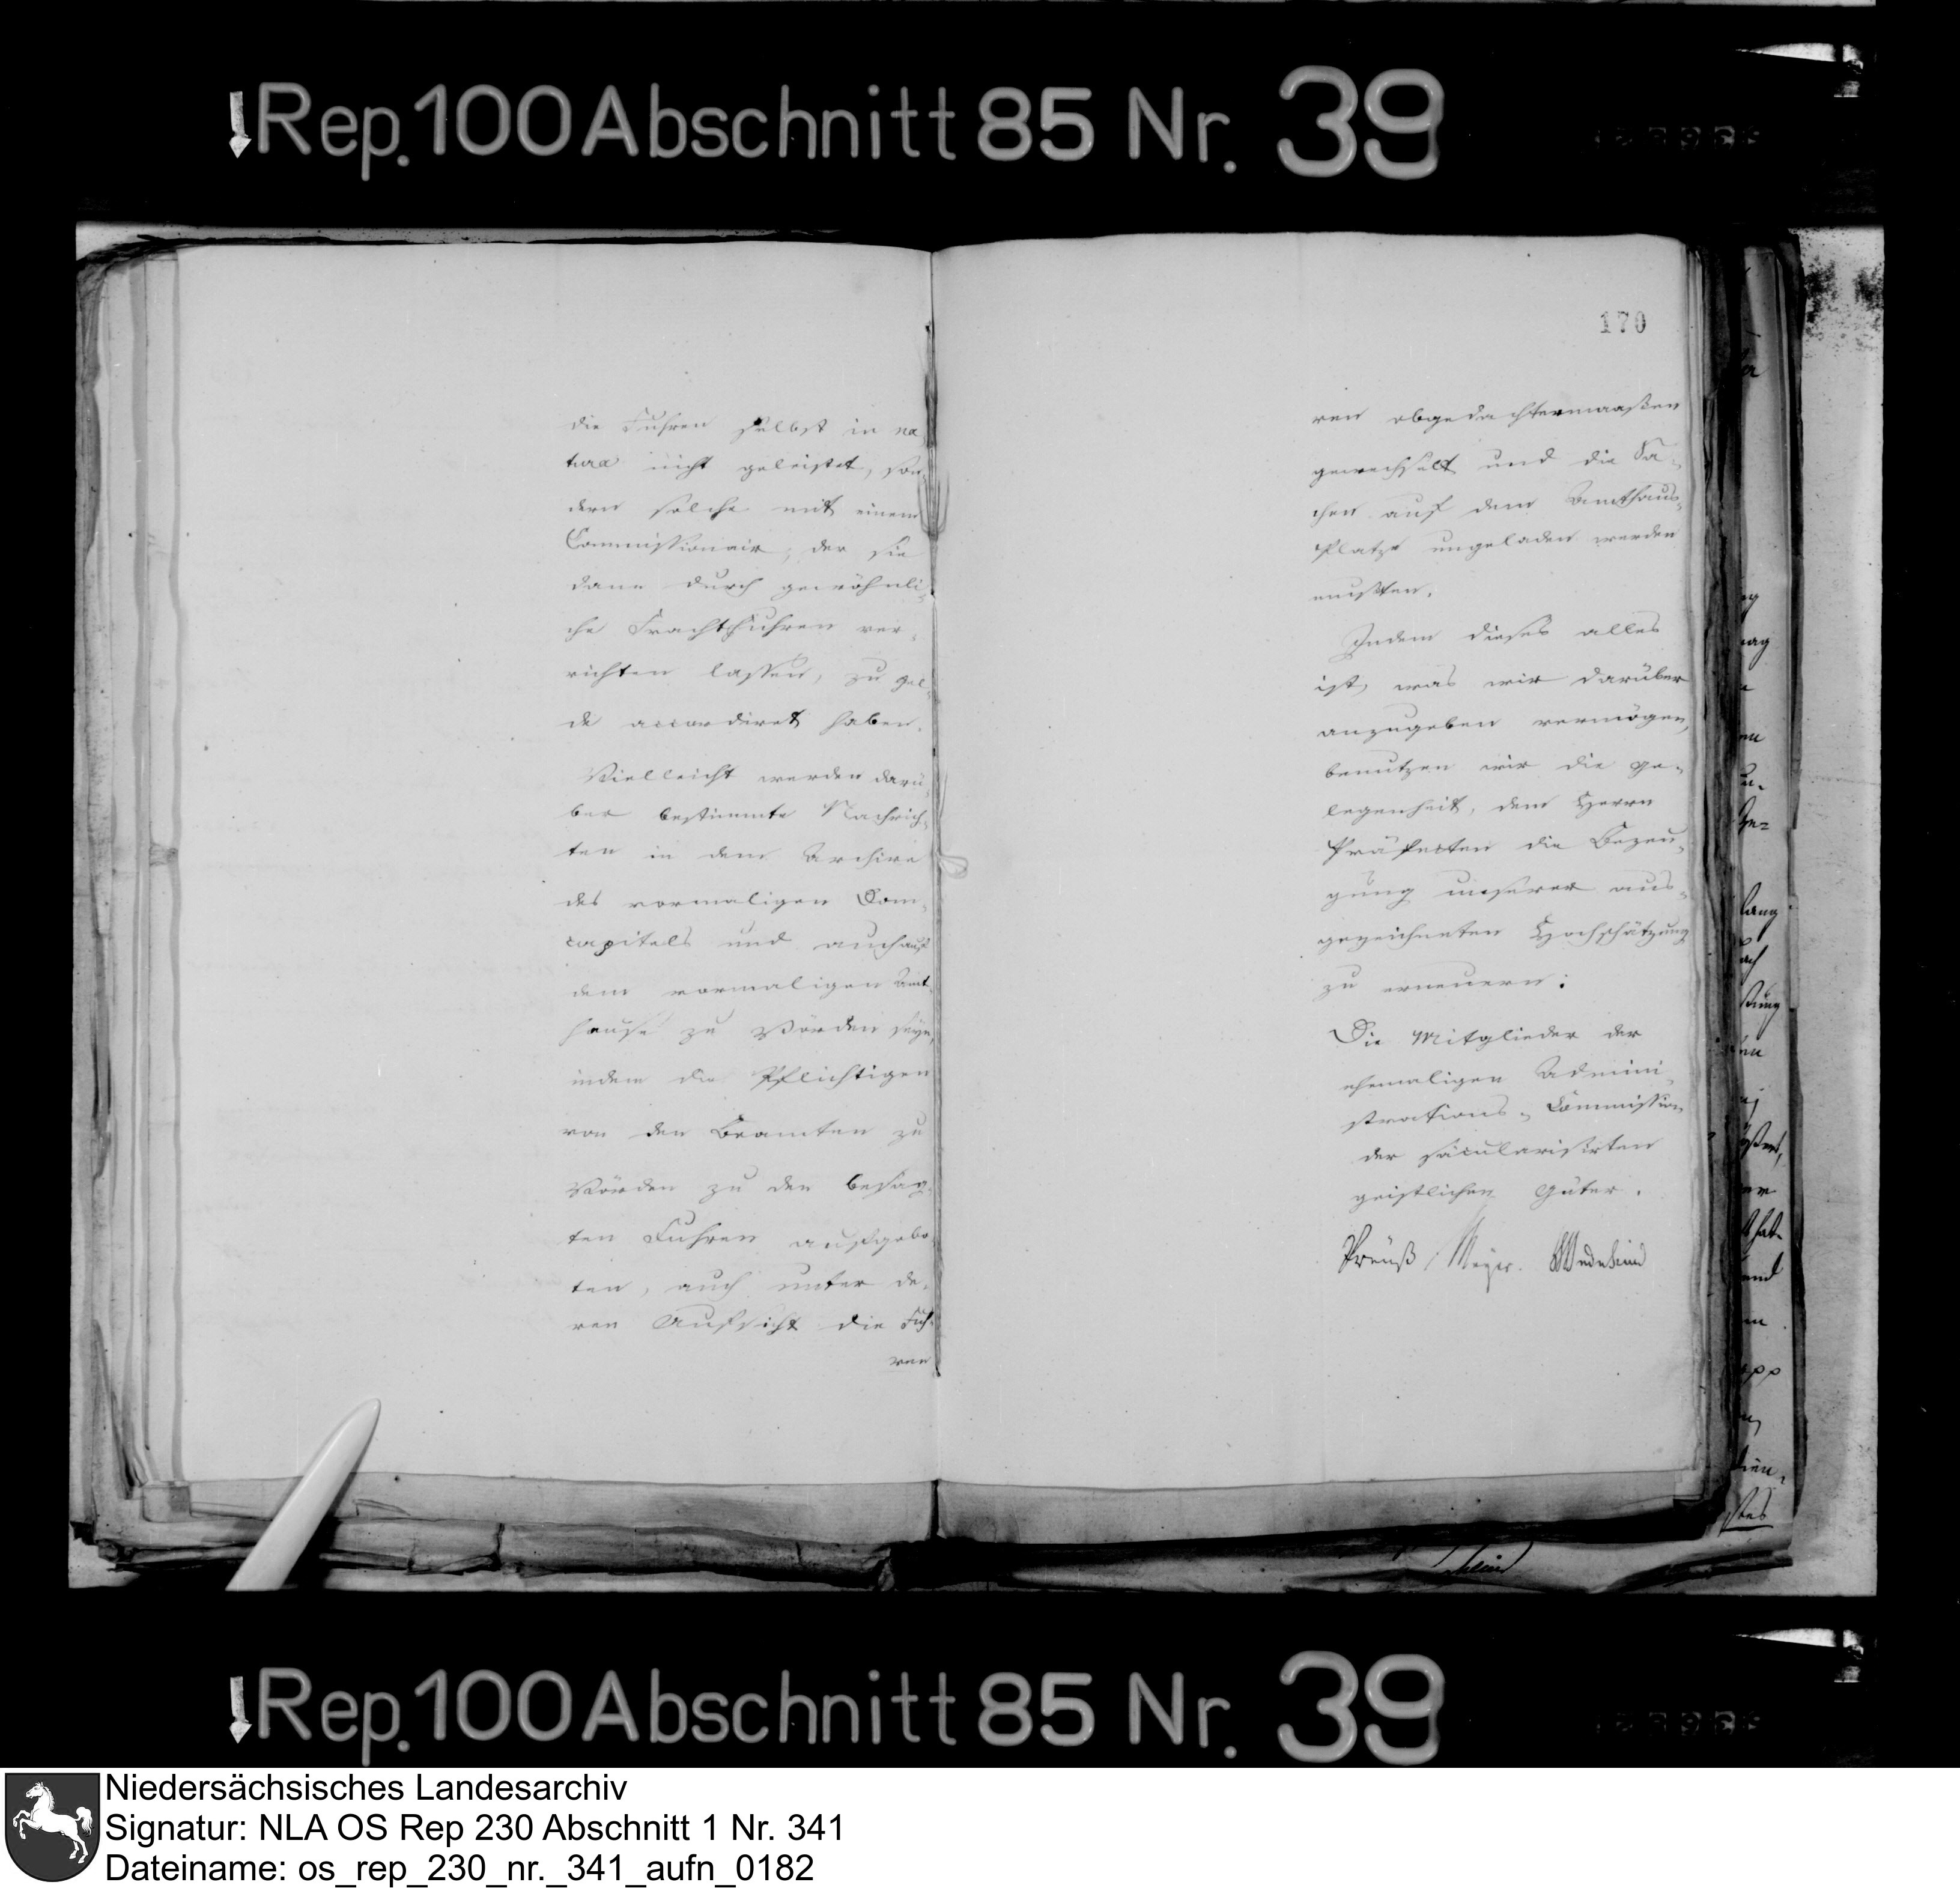 Rep. 100 Abschnitt 85 Nr. 39
die Fuhren selbst in na
tura nicht geleistet, son-
dern solche mit einem
Commissionair, der sie
dann durch gewöhnli-
che Frachtfuhren ver-
richten lassen, zu Gel-
de accordiret haben.
Vielleicht werden darü-
ber bestimmte Nachrich-
ten in dem Archive
des vormaligen Dom-
capitels und auch auf
dem vormaligen Amt-
hause zu Vörden seyn,
indem die Pflichtigen
von den Beamten zu
Vörden zu den besag-
ten Fuhren aufgebo-
ten, auch unter de-
ren Aufsicht die Fuh-
ren
170
ren obgedachtermaaßen
gewechselt und die Sa-
chen auf dem Amthaus-
Platze umgeladen werden
mußten.
Indem dieses alles
ist, was wir darüber
anzugeben vermögen,
benutzen wir die Ge-
legenheit, dem Herrn
Präfecten die Bezeu-
gung unserer aus-
gezeichneten Hochschätzung
zu erneuern:
Die Mitglieder der
ehemaligen Admini-
strations-Commission
der säcularisirten
geistlichen Güter.
Preuß Meyer. Wedekind
Rep. 100 Abschnitt 85 Nr. 39
Niedersächsisches Landesarchiv
Signatur: NLA OS Rep 230 Abschnitt 1 Nr. 341
Dateiname: os_rep_230_nr._341_aufn_0182